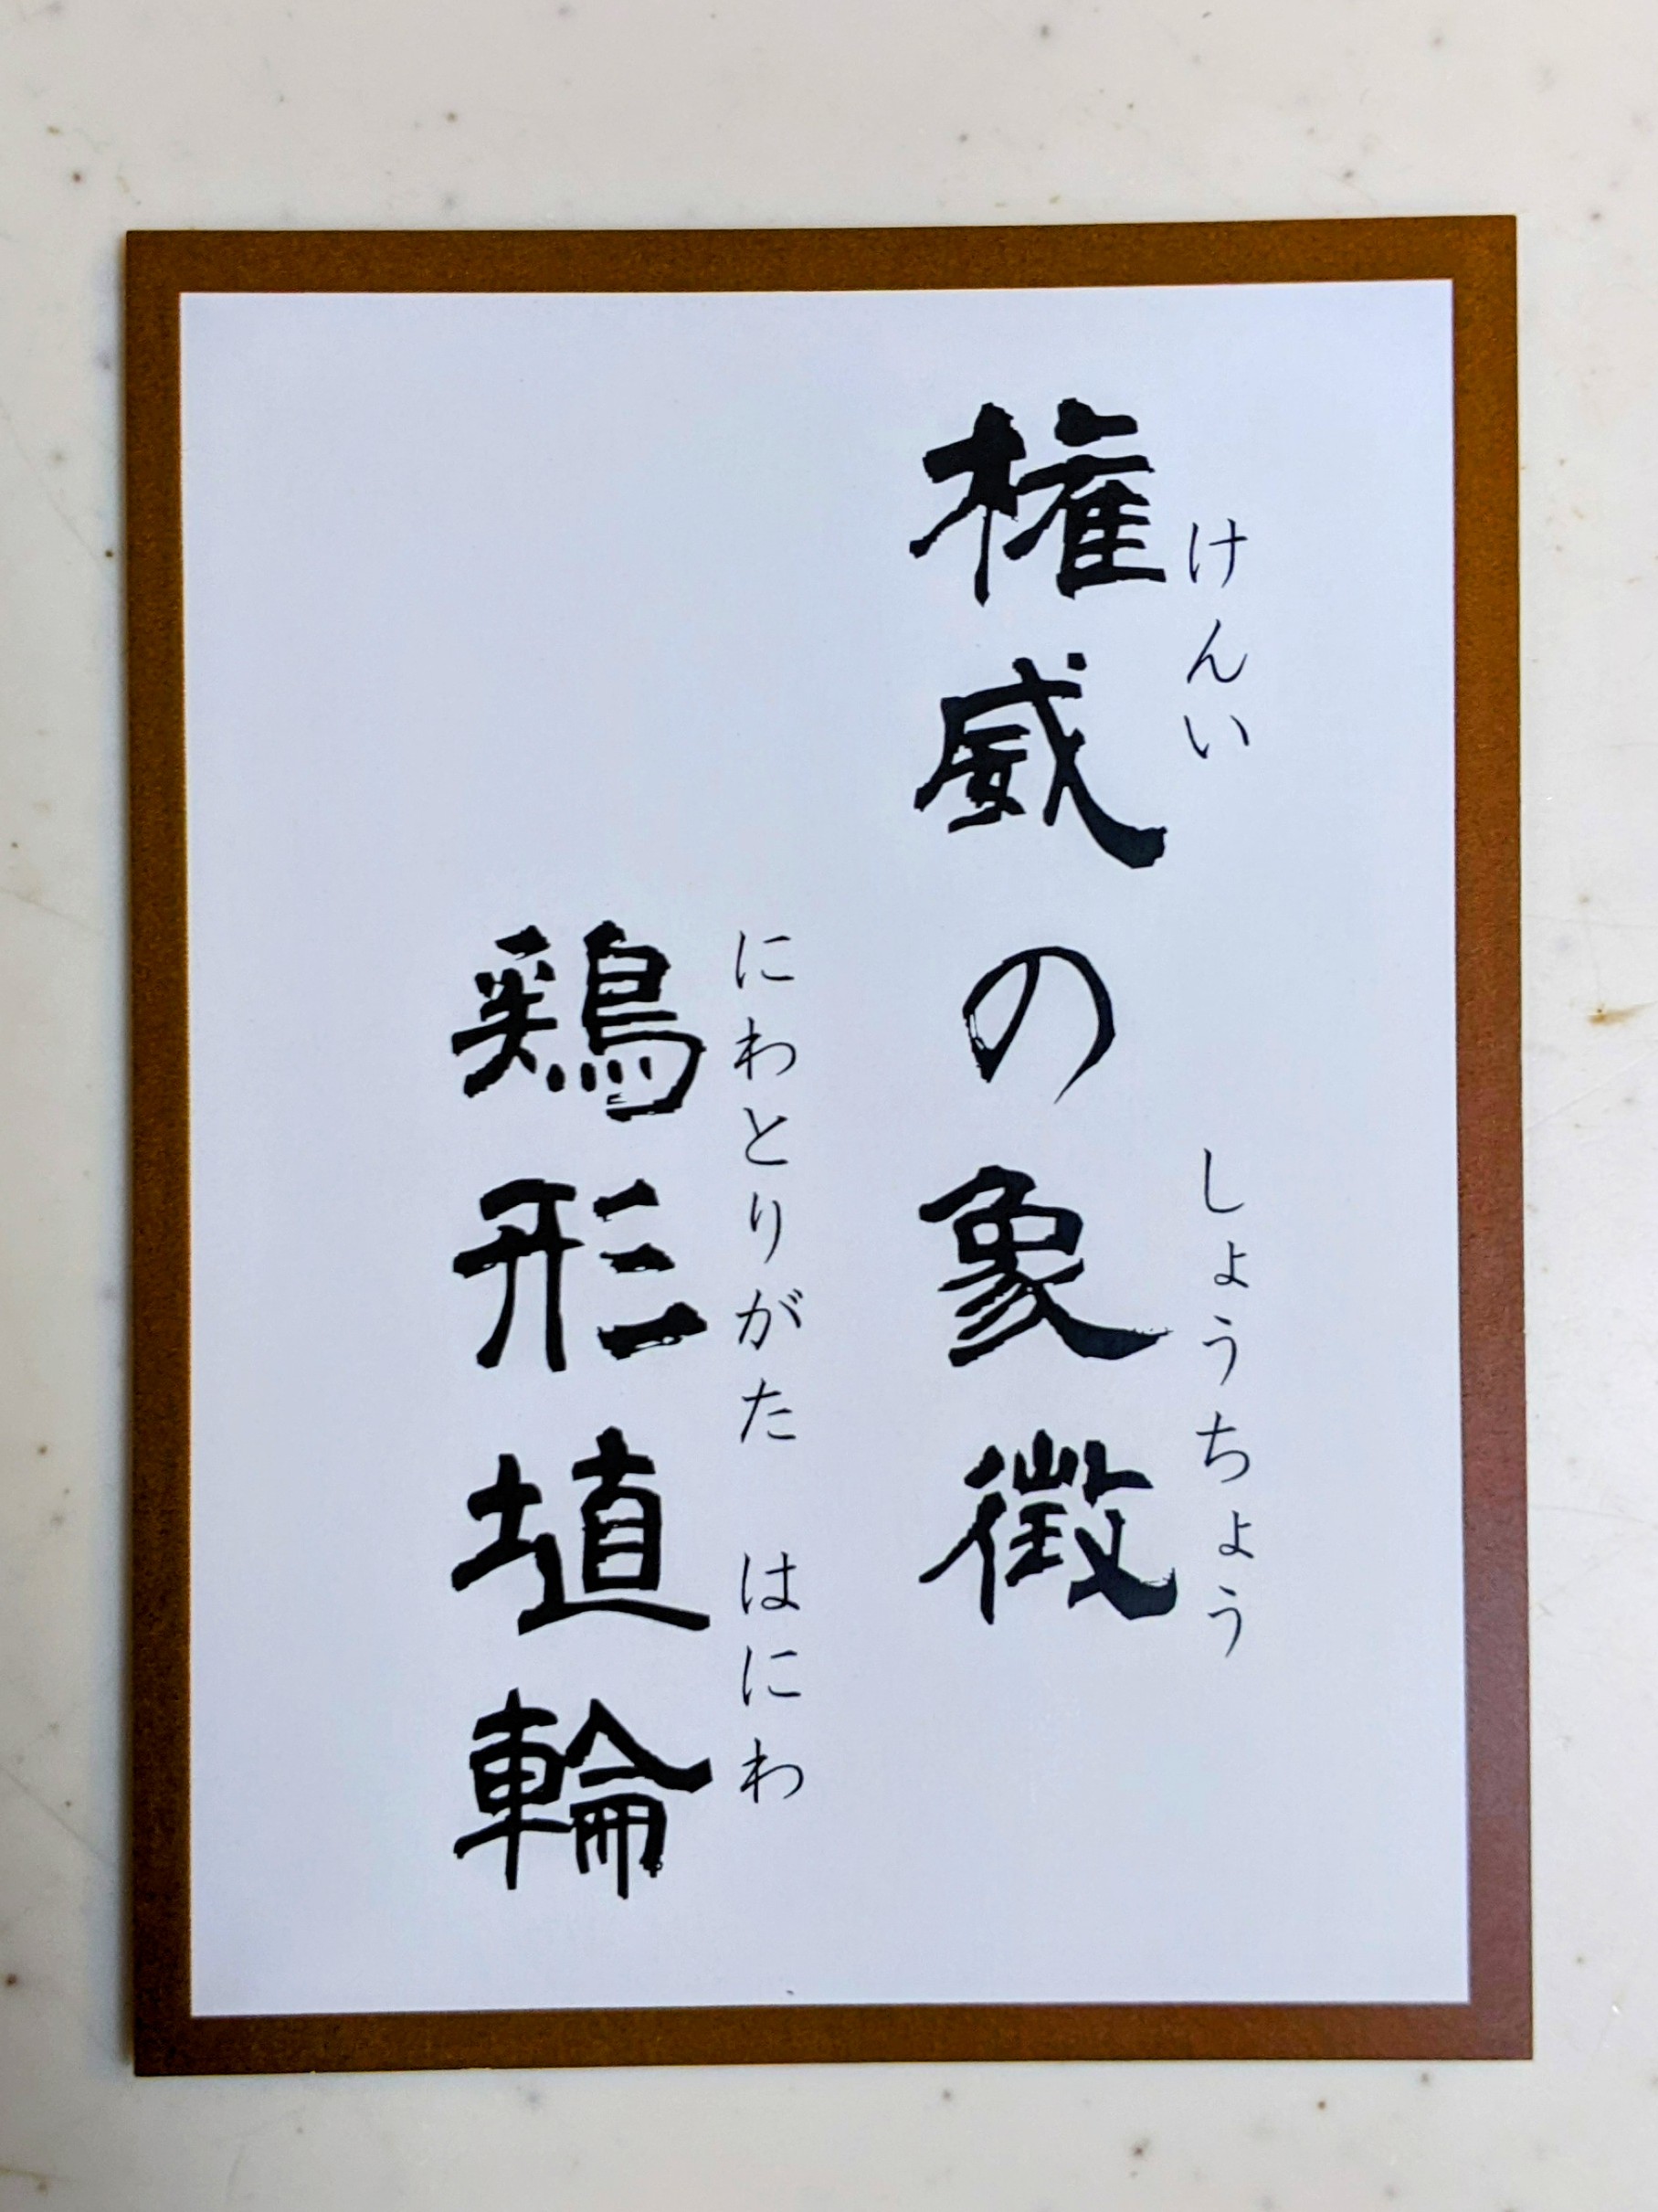 権威の象徴
けんい しょうちょう
鶏形埴輪
にわとりがた はにわ